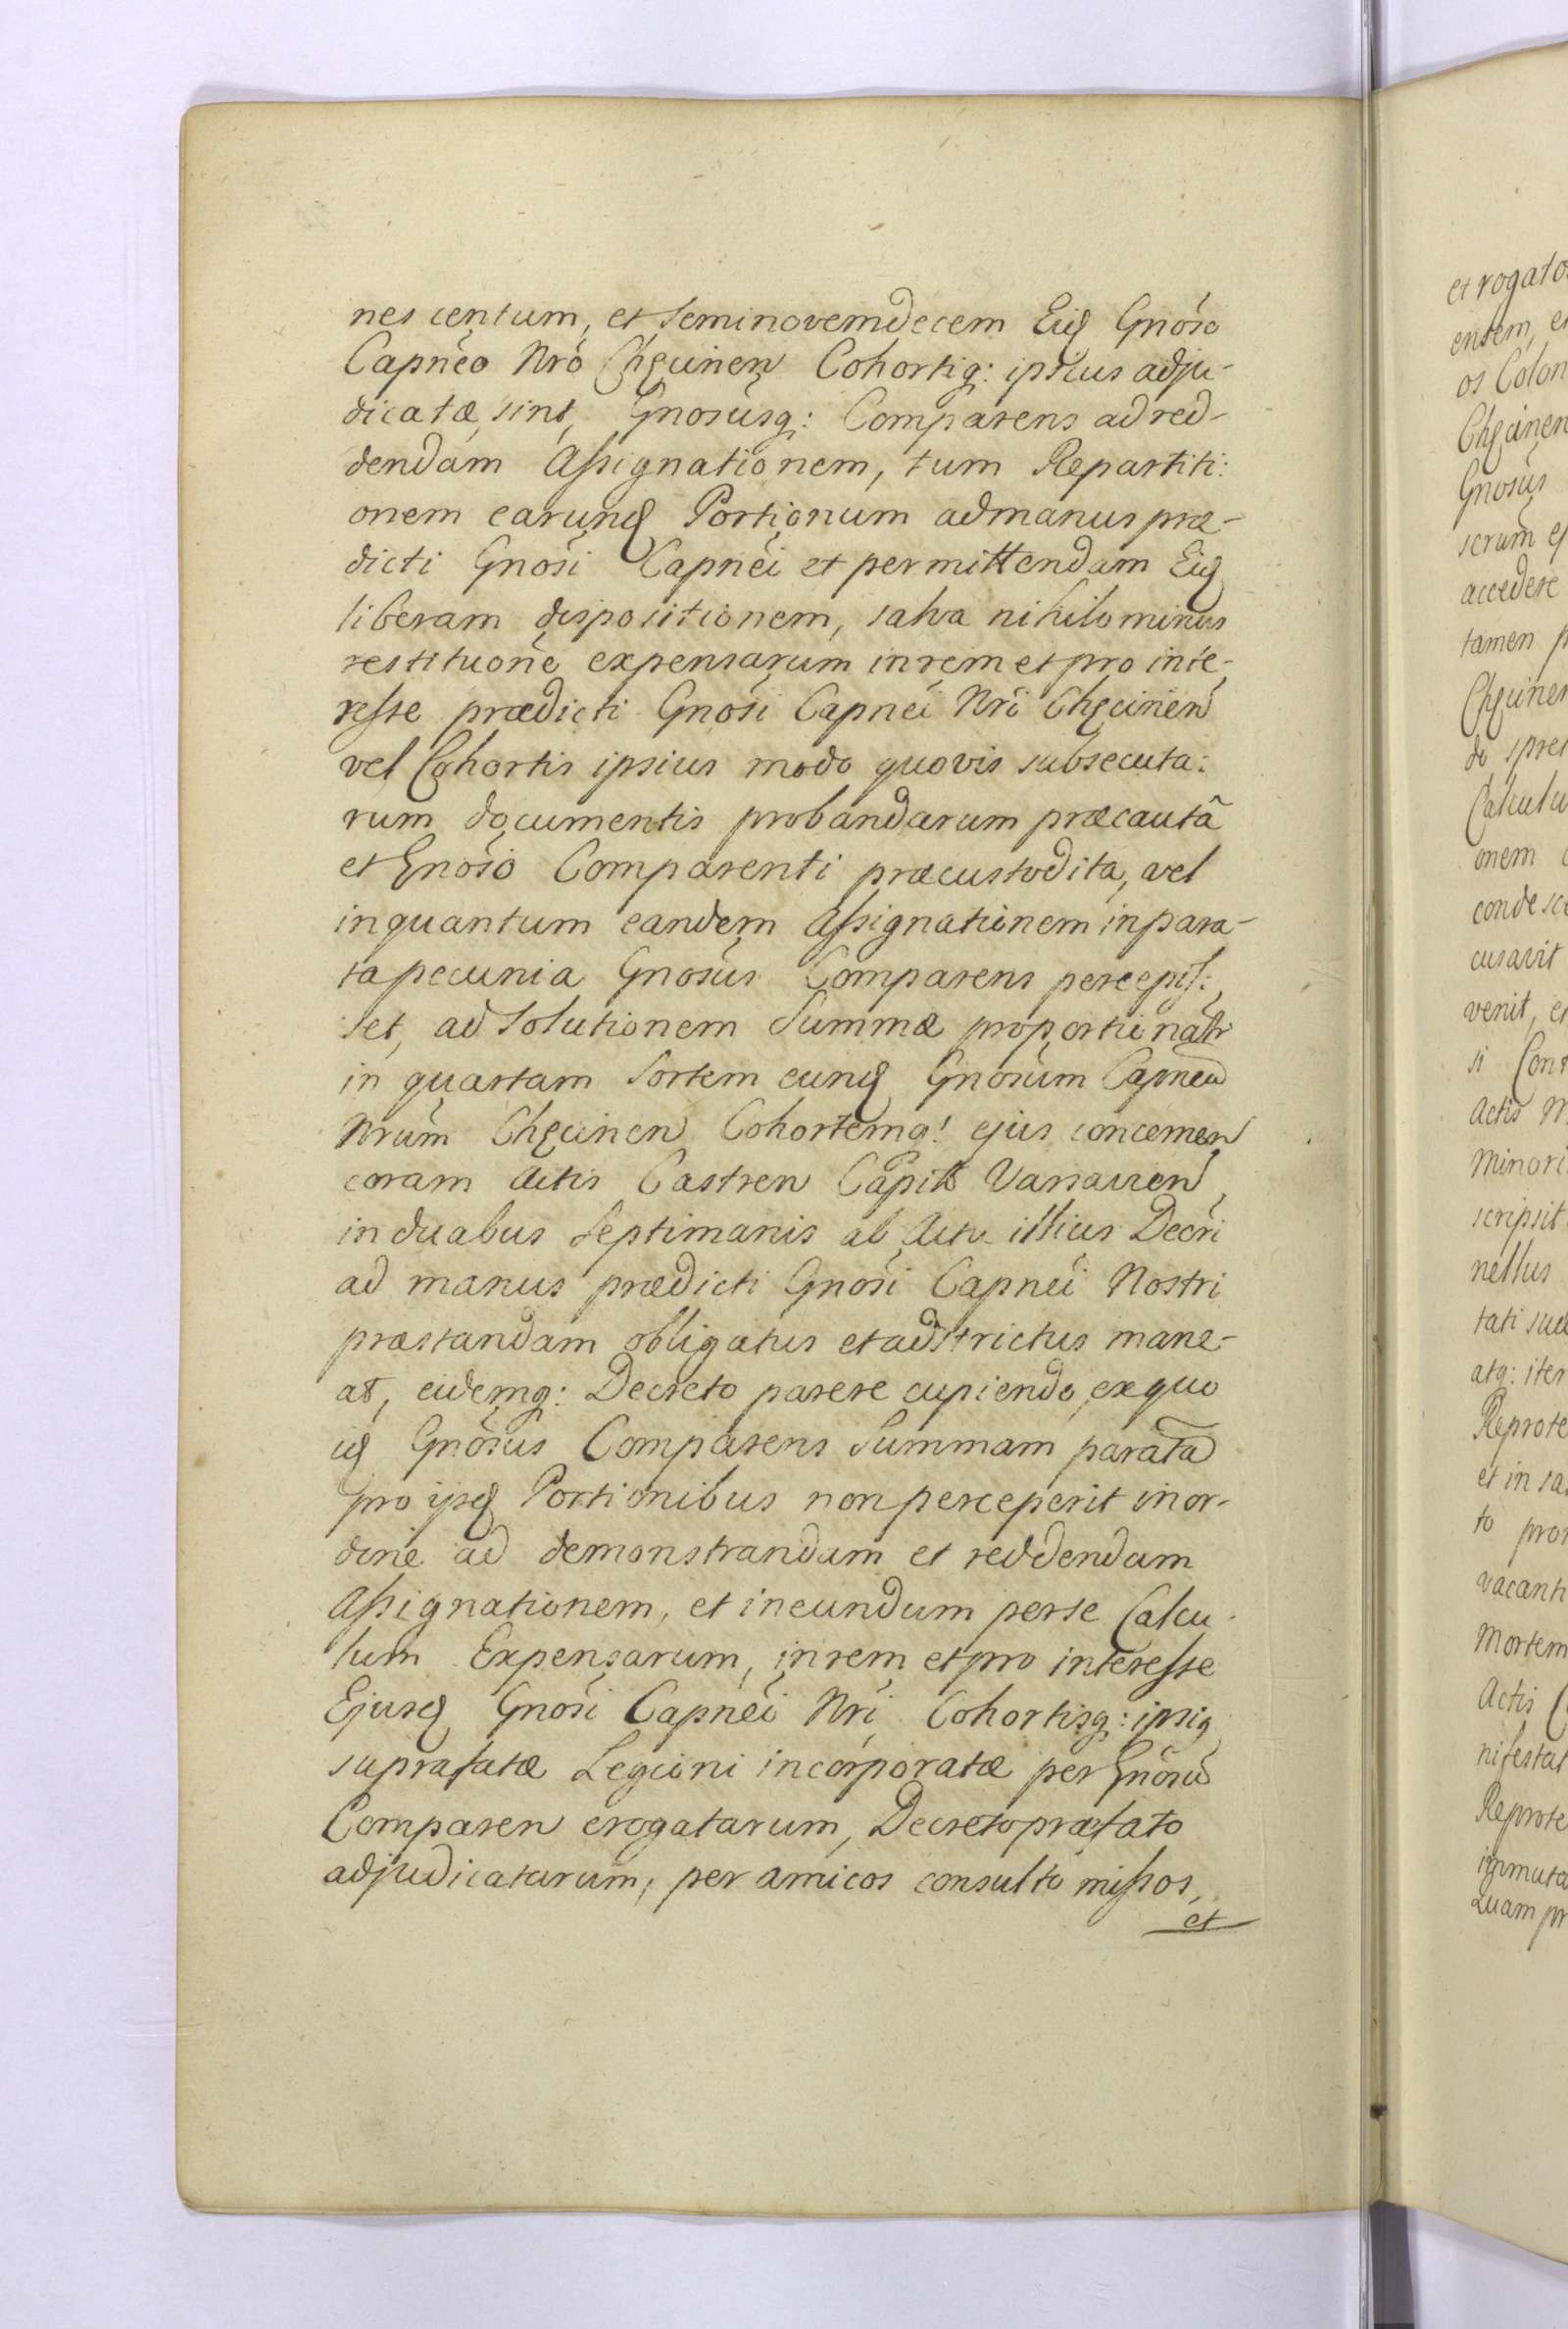 nes centum, et seminovemdecem Eiq Gnoso
Capneo Nro Chęcinen Cohortiq: ipsius adju-
dicatæ, sint, Gnosusq: Comparens ad red-
dendam Assignationem, tum Repartiti:
onem earunq Portionum ad manus præ-
dicti Gnosi Capnei et permittendam Eiq
liberam dispositionem, salva nihilominus
restituone expensarum in rem et pro inte-
resse prædicti Gnosi Capnei Nri Chęcinen
vel Cohortis ipsius modo quovis subsecuta:
rum documentis probandarum præcautâ
et Gnoso Comparenti præcustodita, vel
inquantum eandem Assignationem in para-
ta pecunia Gnosus Comparens percepis:
set, ad Solutionem Summæ proportionatr
in quartam Sortem eunq Gnosum Capneu
Nrum Chęcinen Cohortemq: ejus concernen
coram Actis Castren Capitt Varsavien
in duabus Septimanis ab Actu illius Decri
ad manus prædicti Gnosi Capnei Nostri
præstandam obligatus et adstrictus mane-
at, eidemq: Decreto parere cupiendo, ex quo
iq Gnosus Comparens Summam parata
pro ipsq Portionibus non perceperit in or-
dine ad demonstrandam et reddendam
Assignationem, et ineundum per se Calcu-
lum Expensarum, in rem et pro interesse
Ejusq Gnosi Capnei Nri Cohortisq: ipsiq
suprafatæ Legioni incorporatæ per Gnosu
Comparen erogatarum, Decreto præfato
adjudicatarum, per amicos consulto missos,
et
et rogato
ensem, e
os Colon
Chęcinen
Gnosus
serum ej
accedere
tamen p
Chęcinen
de spre
Calculu
onem
condesce
cusavit
venit, et
si Cont
Actis M
Minori
scripsit
nellus
tati suæ
atq: iter
Reprote
et in sa
to pro
vacanti
Mortem
Actis C
nifestat
Reprote
immuta
Quam pr